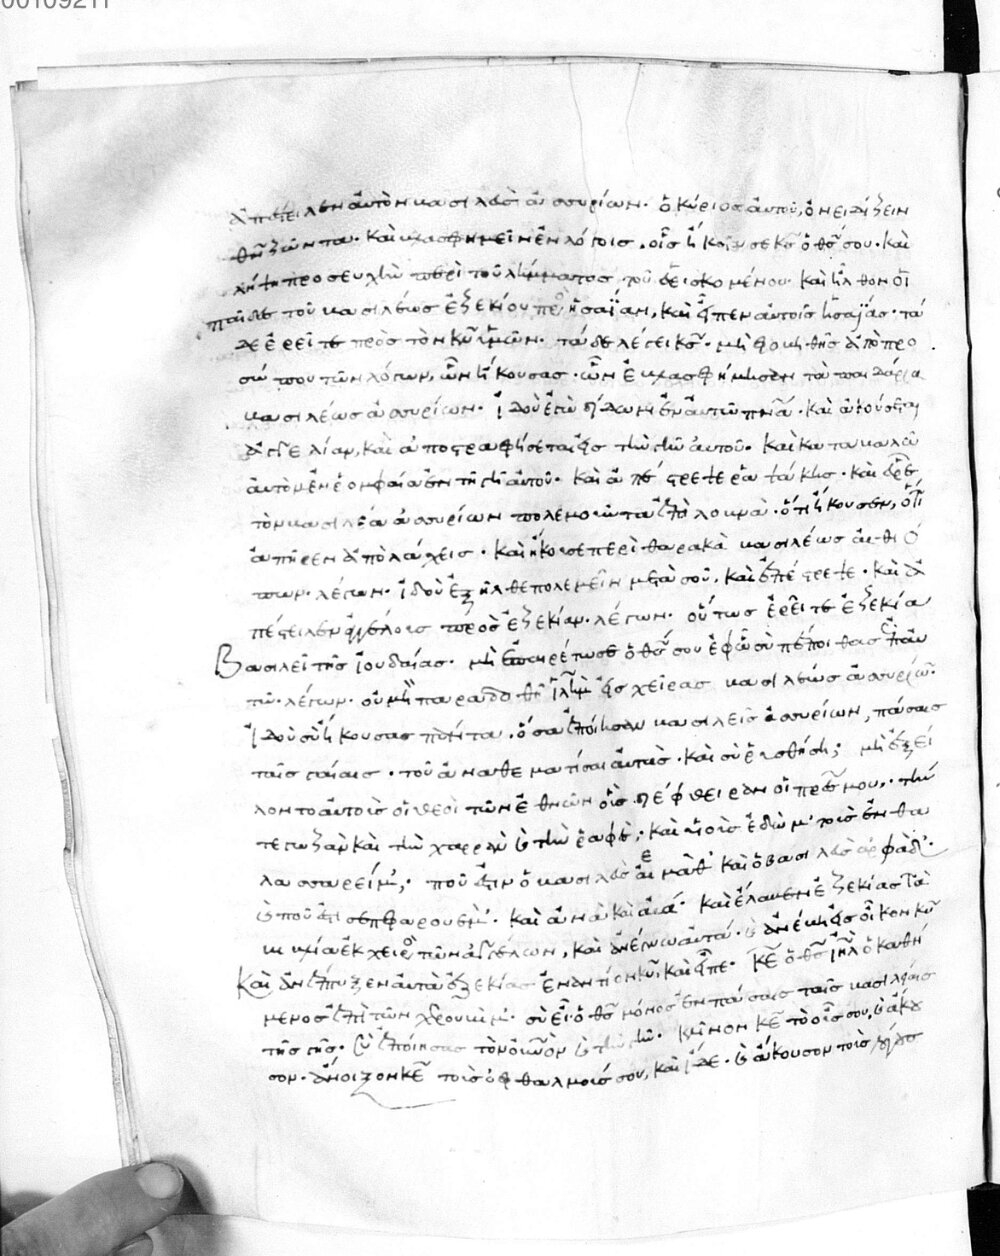 00109211
ἀπέστειλεν αὐτὸν βασιλεὺς ἀσσυρίων· ὁ κύριος αὐτοῦ, ὀνειδίζειν
θν̅ ζῶντα· καὶ βλασφημεῖν ἐν λόγοις, οἷς ἤκουσε κς̅ ὁ θς̅ σου· καὶ
λήψῃ προσευχὴν περὶ τοῦ λήμματος τοῦ εὑρισκομένου· καὶ ἦλθον οἱ
παῖδες τοῦ βασιλέως ἐζεκίου πρὸς ἠσαΐαν, καὶ εἶπεν αὐτοῖς ἠσαΐας· τά
δε ἐρεῖτε πρὸς τὸν κν̅ ὑμῶν· τάδε λέγει κς̅· μὴ φοβηθῇς ἀπὸ προ
σώπου τῶν λόγων, ὧν ἤκουσας· ὧν ἐβλασφήμησαν τὰ παιδάρια
βασιλέως ἀσσυρίων· ἰδοὺ ἐγὼ δίδωμι ἐν αὐτῷ πνα̅· καὶ ἀκούσεται
ἀγγελίαν, καὶ ἀποστραφήσεται εἰς τὴν γῆν αὐτοῦ· καὶ καταβαλῶ
αὐτὸν ἐν ῥομφαίᾳ ἐν τῇ γῇ αὐτοῦ· καὶ ἀπέστρεψε ῥαψάκης· καὶ εὗρε
τὸν βασιλέα ἀσσυρίων πολεμοῦντα ἐπὶ λομνὰ· ὅτι ἤκουσεν, ὅτι
ἀπῆρεν ἀπὸ λάχεις· καὶ ἤκουσε περὶ θαρακὰ βασιλέως αἰθιό
πων· λέγων· ἰδοὺ ἐξῆλθε πολεμεῖν μετὰ σοῦ, καὶ ἐπέστρεψε· καὶ ἀ
πέστειλεν ἀγγέλους πρὸς ἐζεκίαν λέγων· οὕτως ἐρεῖτε ἐζεκία
Βασιλεῖ τῆς ἰουδαίας· μὴ ἐπαιρέτω σε ὁ θς̅ σου ἐφ' ᾧ σὺ πέποιθας ἐπ' αὐ
τῷ· λέγων· οὐ μὴ παραδοθῇ ἱλη̅μ̅ εἰς χεῖρας βασιλέως ἀσσυρίων·
ἰδοὺ σὺ ἤκουσας πάντα, ὅσα ἐποίησαν βασιλεῖς ἀσσυρίων, πάσαις
ταῖς γαίαις· τοῦ ἀναθεματίσαι αὐτὰς· καὶ σὺ ῥυσθήσῃ; μὴ ἐξεί
λοντο αὐτοὺς οἱ θεοὶ τῶν ἐθνῶν οὓς διέφθειραν οἱ πρες̅ μου,· τήν
τε γωζὰν καὶ τὴν χαρρὰν καὶ τὴν ῥαφὲς; καὶ υἱοὺς ἐδὼμ τοὺς ἐν θα
λασσαρείμ,· ποῦ ἐστιν ὁ βασιλεὺς αἰμὰθ' καὶ ὁ βασιλεὺς ἀρφὰδ'·
καὶ ποῦ ἐστι σεπφαρουεὶμ· καὶ ἀνὰ καὶ αὐά· καὶ ἔλαβεν ἐζεκίας τὰ
βιβλία ἐκ χειρὸς τῶν ἀγγέλων, καὶ ἀνέγνω αὐτά· καὶ ἀνέβη εἰς οἶκον κυ̅
Καὶ ἀνέπτυξεν αὐτὰ ἐζεκίας ἐναντίον κυ̅ καὶ εἶπε· κε̅ ὁ θς̅ ιη̅λ̅ ὁ καθή
μενος ἐπὶ τῶν χερουβίμ· σὺ εἶ ὁ θς̅ μόνος ἐν πάσαις ταῖς βασιλείαις
τῆς γῆς· σὺ ἐποίησας τὸν οὐνον καὶ τὴν γῆν· κλῖνον κε̅ τὸ οὖς σου, καὶ ἄκου
σον· ἄνοιξον κε̅ τοὺς ὀφθαλμούς σου, καὶ ἴδε· καὶ ἄκουσον τοὺς λόγους